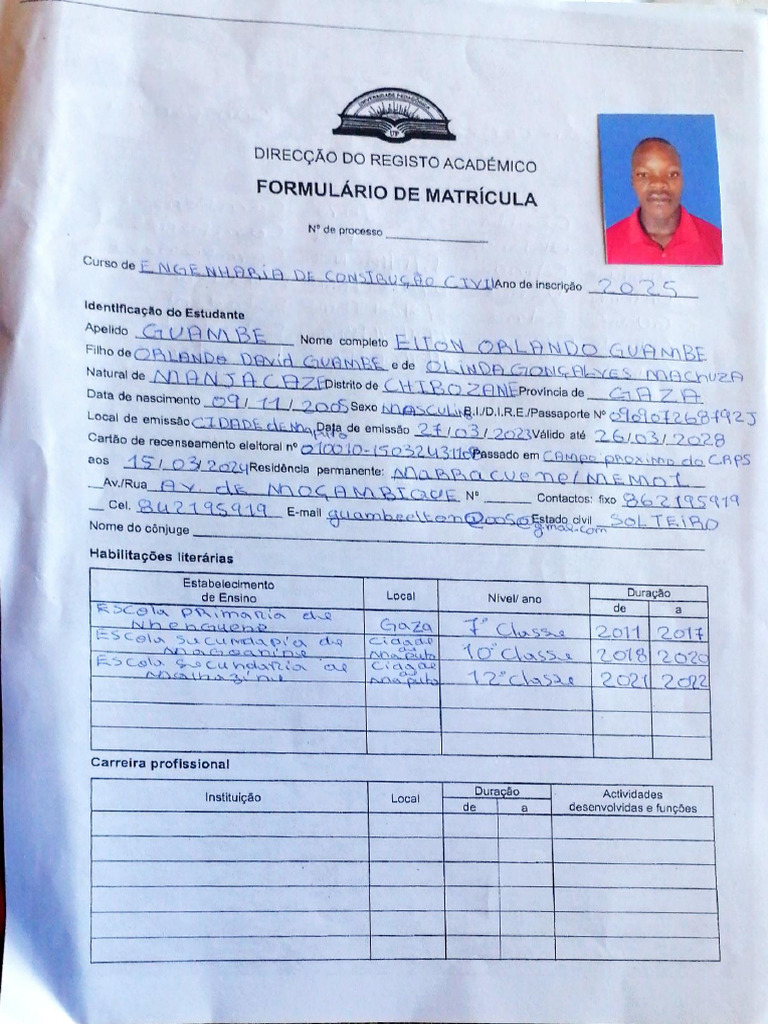 UNIVERSIDADE PEDAGÓGICA
UP
DIRECÇÃO DO REGISTO ACADÉMICO
FORMULÁRIO DE MATRÍCULA
Nº de processo
Curso de ENGENHARIA DE CONSTRUÇÃO CIVIL Ano de inscrição 2025
Identificação do Estudante
Apelido GUAMBE Nome completo ELTON ORLANDO GUAMBE
Filho de ORLANDO DAVID GUAMBE e de OLINDA GONÇALVES MACHUZA
Natural de MANJACAZE Distrito de CHIBOZANE Província de GAZA
Data de nascimento 09/11/2005 Sexo MASCULINO B.I./D.I.R.E./Passaporte Nº 090907268792J
Local de emissão CIDADE de Maputo Data de emissão 27/03/2023 Válido até 26/03/2028
Cartão de recenseamento eleitoral nº Passado em CAMPO proximo do CAPS
aos 15/03/2024 Residência permanente: MARRACUENE/
Av./Rua AV. de MOÇAMBIQUE Nº Contactos: fixo 862195919
Cel. 842195919 E-mail Estado civil SOLTEIRO
Nome do cônjuge
Habilitações literárias
Estabelecimento de Ensino Local Nível/ ano Duração
de a
Escola primaria de Nhenguene Gaza 7ª Classe 2011 2017
Escola secundaria de Magoanine Cidade de Maputo 10ª Classe 2018 2020
Escola secundaria de Malhazine Cidade de Maputo 12ª Classe 2021 2022
Carreira profissional
Instituição Local Duração Actividades desenvolvidas e funções
de a